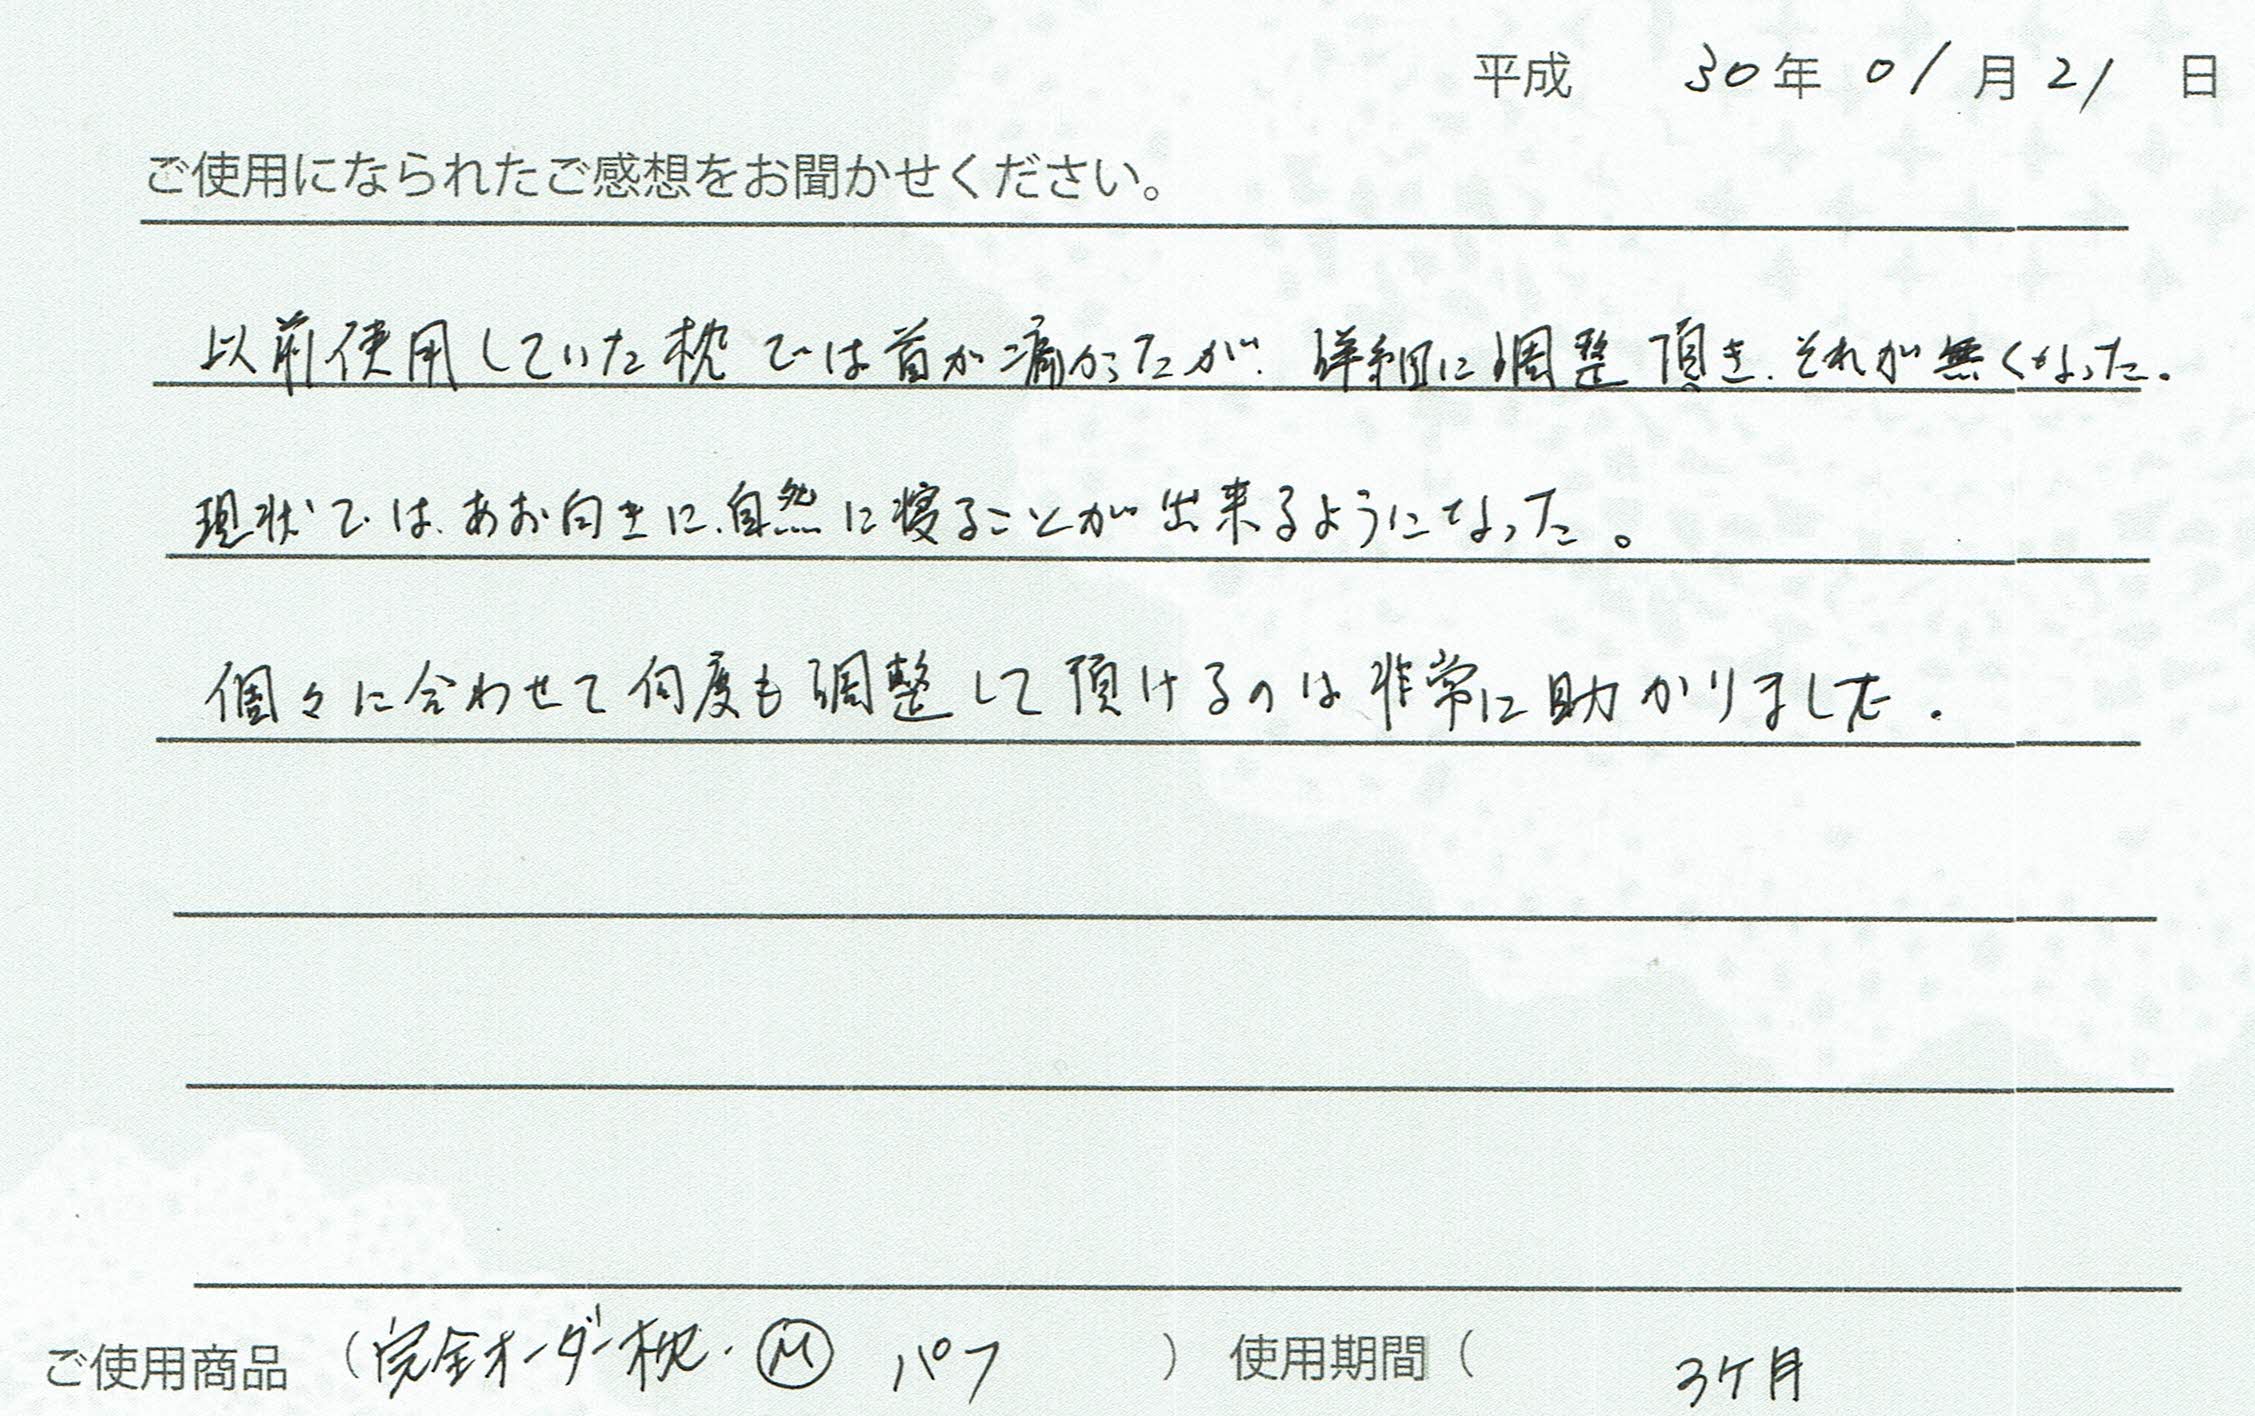 平成 30年 01月 21日
ご使用になられたご感想をお聞かせください。
以前使用していた枕では首が痛かったが、詳細に調整頂き、それが無くなった。
現状では、あお向きに、自然に寝ることが出来るようになった。
個々に合わせて何度も調整して頂けるのは非常に助かりました。
ご使用商品 (完全オーダー枕・Ⓜ パフ ) 使用期間( 3ケ月